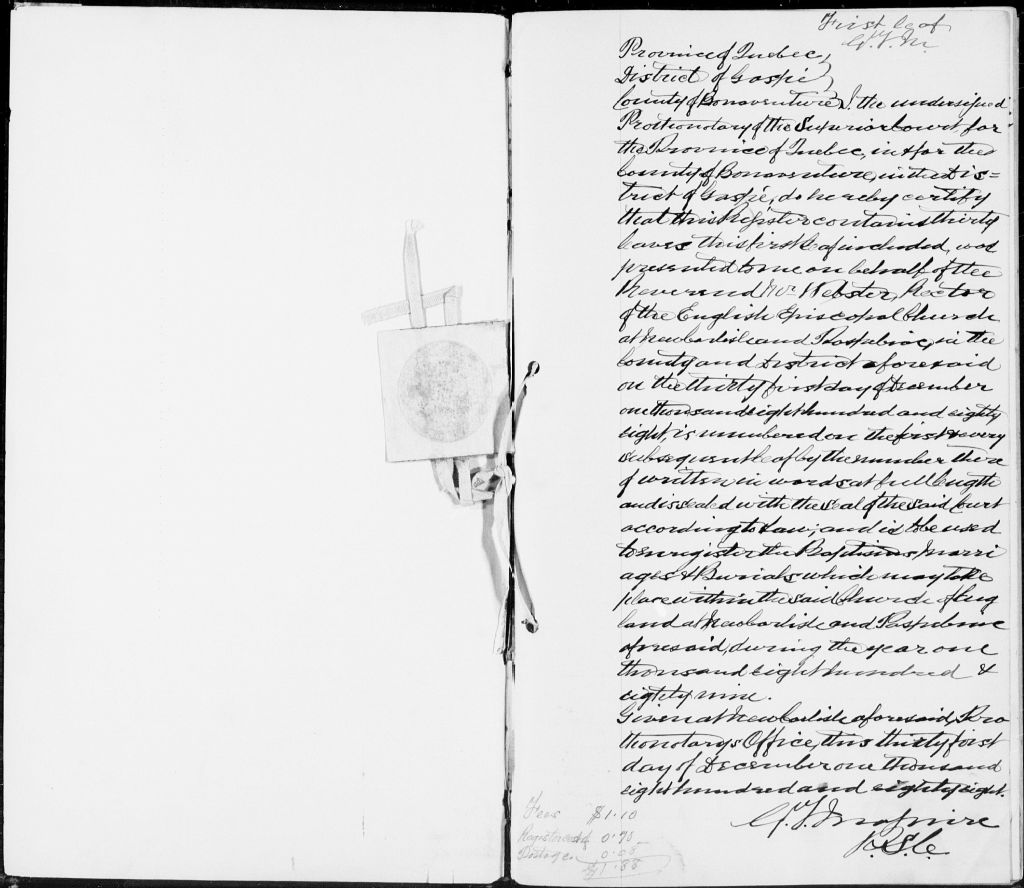 First leaf
Province of Quebec,
District of Gaspé
County of Bonaventure, I, the undersigned
Prothonotary of the Superior Court for
the Province of Quebec, in & for the
County of Bonaventure, in the Dis=
trict of Gaspé, do hereby certify
that this Register contains thirty
leaves this first leaf included, was
presented to me on behalf of the
Reverend Mr. Webster, Rector
of the English Episcopal Church
at New Carlisle and Paspebiac, in the
County and District aforesaid
on the thirty first day of December
one thousand eight hundred and eighty
eight, is numbered on the first & every
subsequent leaf by the number there
of written in words at full length
and is sealed with the seal of the said Court
according to Law; and is to be used
to enregister the Baptisms, Marri
ages & Burials which may take
place within the said Church of Eng
land at New Carlisle and Paspebiac
aforesaid, during the year one
thousand eight hundred &
eighty nine.
Given at New Carlisle aforesaid, Pro
thonotary's Office, this thirty first
day of December one thousand
eight hundred and eighty eight.
P.S.C.
Fees $1.10
Postage